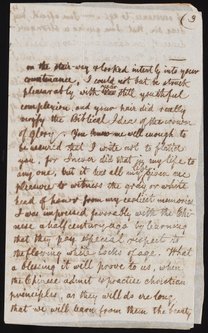 3
on the stair way & looked intently into your
countenance, I could not but be struck
pleasurably with your still youthful
complexion, and your hair did really
verify the Biblical Idea of the crown
of glory. You know me well enough to
be assured that I write not to flatter
you, for I never did that in my life to
any one, but it has all my life given me
pleasure to witness the gray or white
head of honor from my earliest memories.
I was impressed favorably with the Chi-
nese a half century ago by learning
that they pay special respect to
the flowing white locks of age. What
a blessing it will prove to us, when
the Chinese admit & practice christian
principles, as they will do ere long,
that we will learn from them the beauty